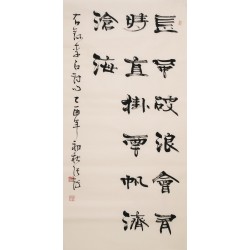 長風破浪會有
時直掛雲帆濟
滄海
右錄李白詩句乙酉年初秋